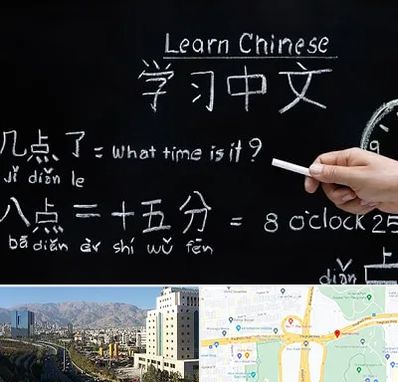 Learn Chinese
学习中文
几点了 = What time is it?
Jǐ diǎn le
八点二十五分 = 8 o'clock 25
bā diǎn èr shí wǔ fēn
diǎn